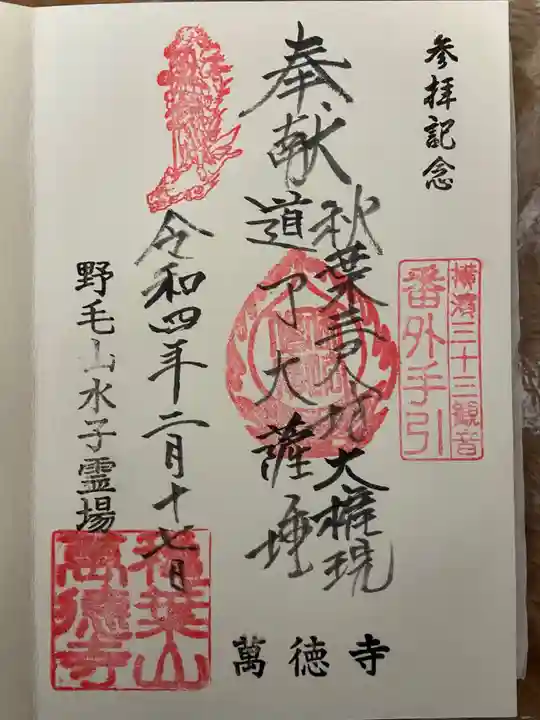 参拝記念
横濱三十三観音
番外手引
奉献
秋葉三尺坊大権現
道了大薩埵
萬徳寺
令和四年二月十七日
野毛山水子霊場
萬徳寺